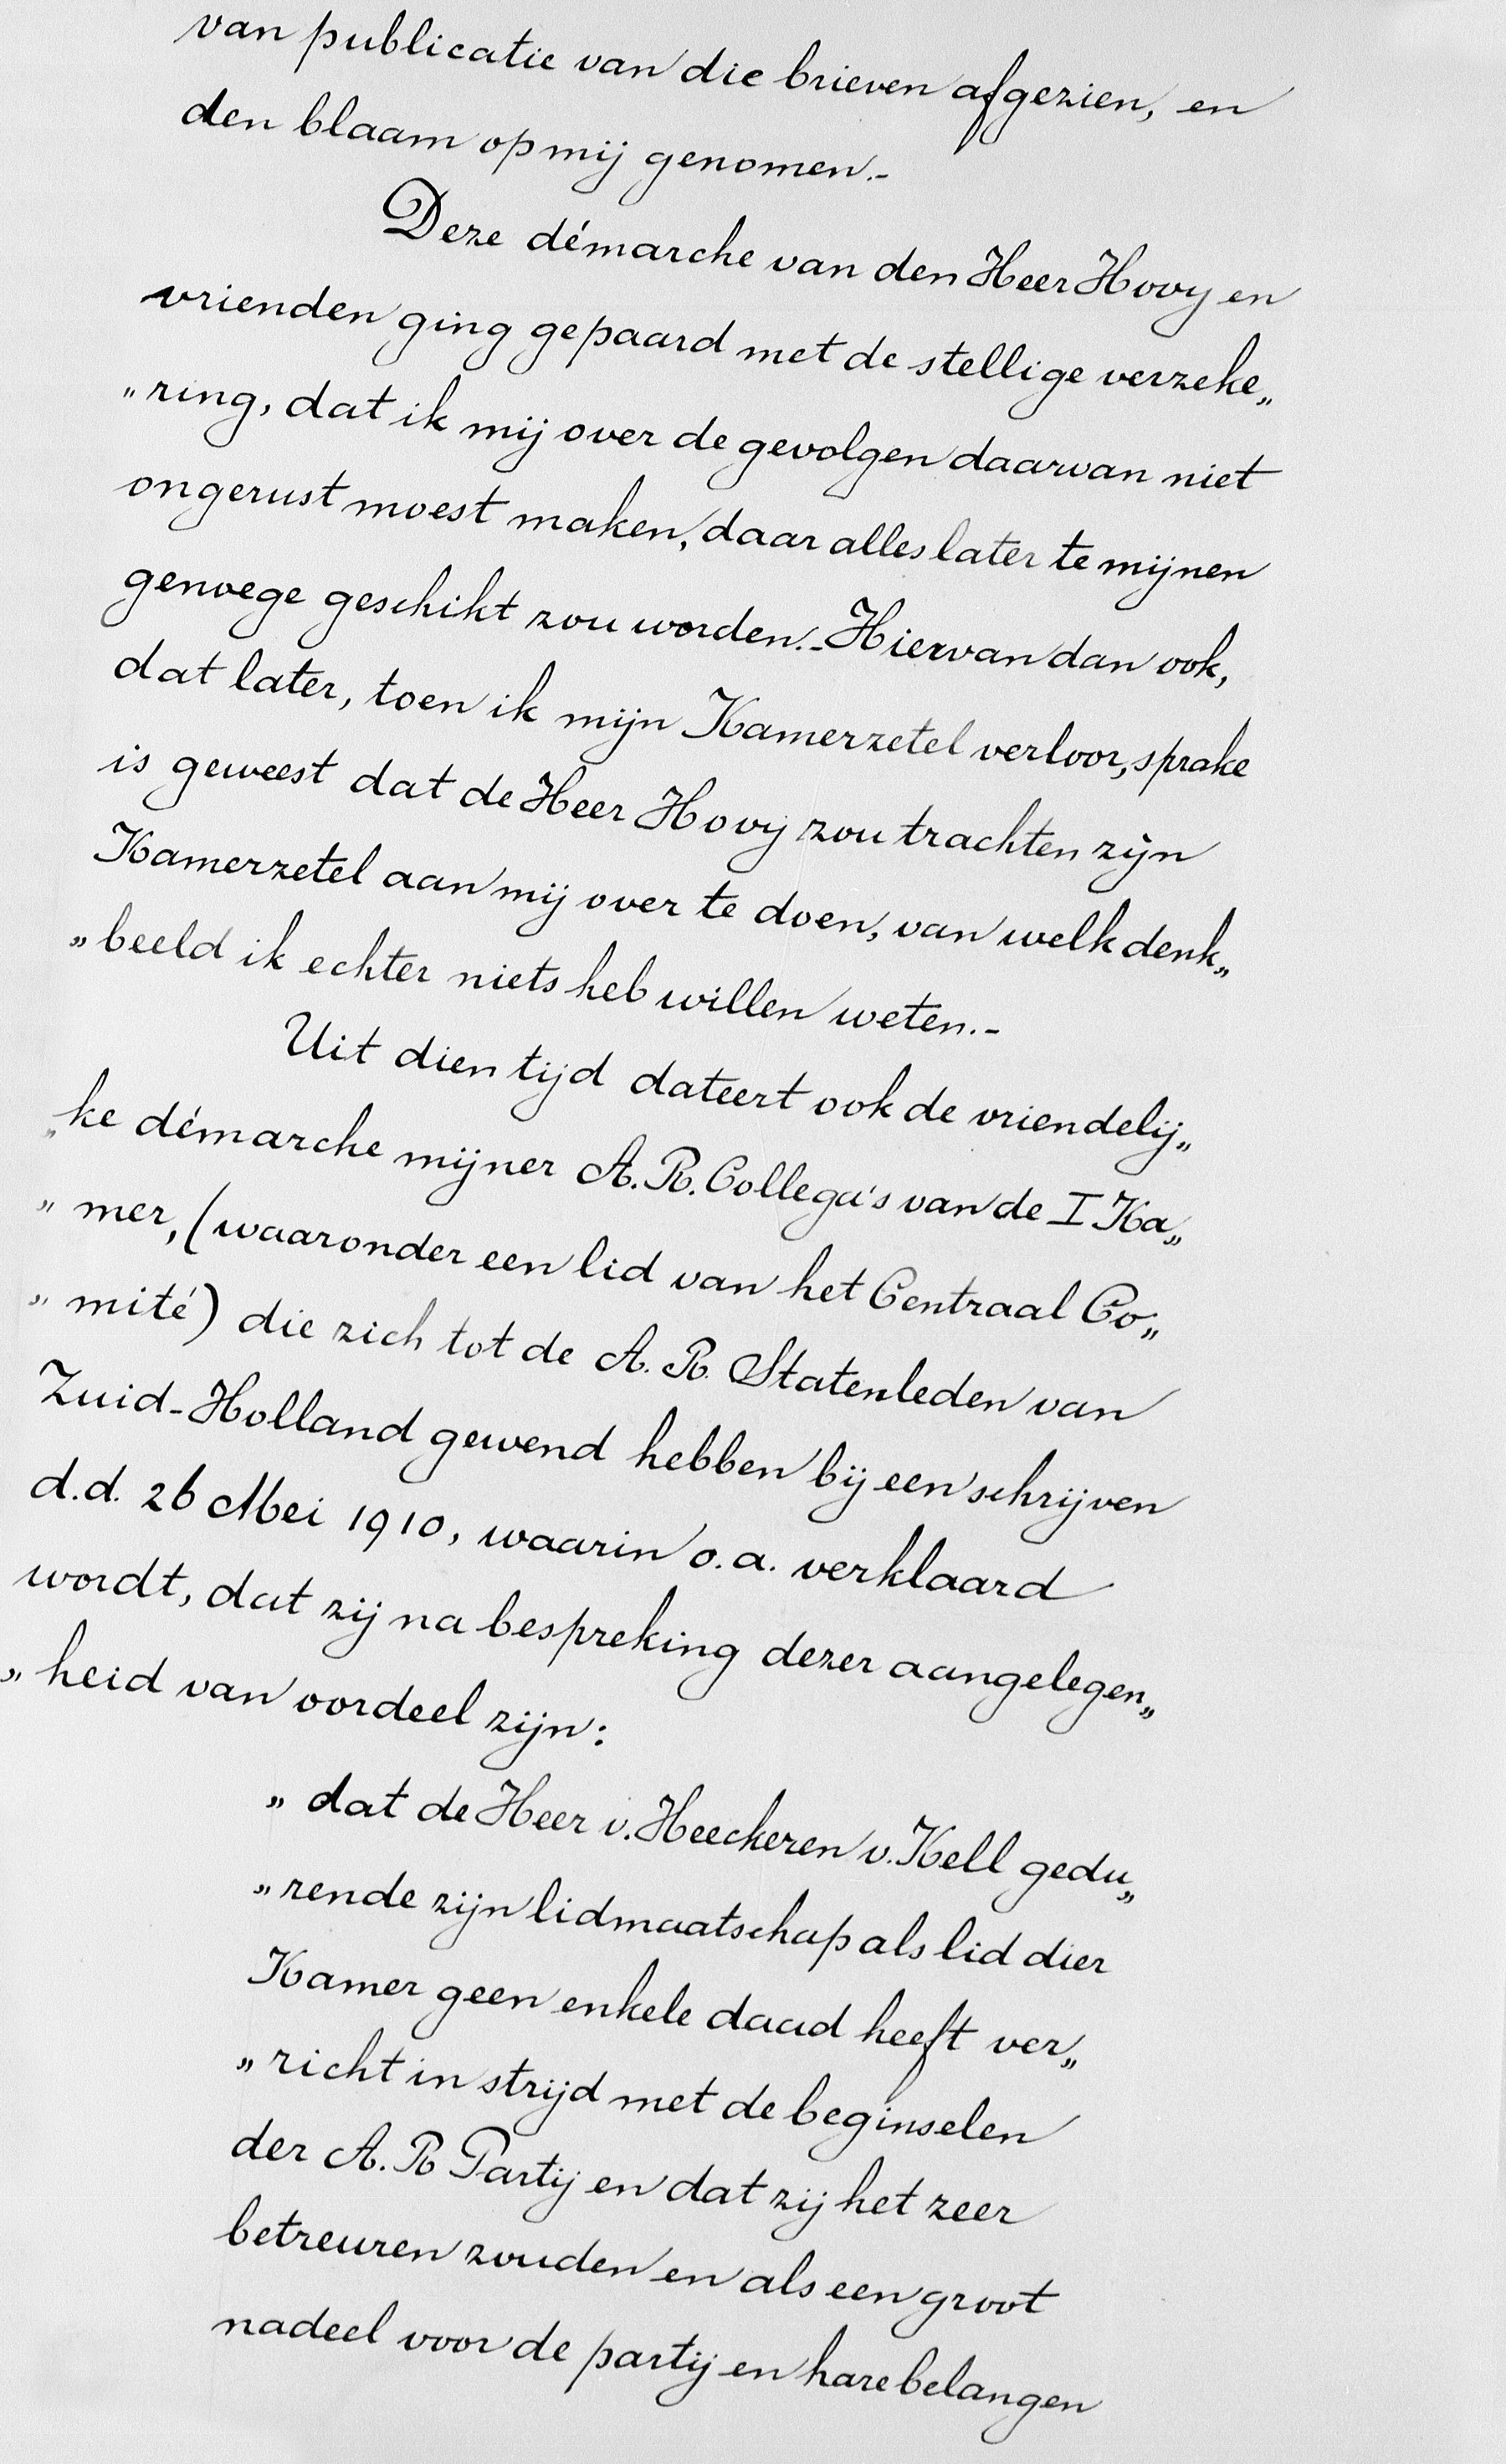 van publicatie van die brieven afgezien, en
den blaam op mij genomen.-
Deze démarche van den Heer Hovy en
vrienden ging gepaard met de stellige verzeke„
„ring, dat ik mij over de gevolgen daarvan niet
ongerust moest maken, daar alles later te mijnen
genoege geschikt zou worden.- Hiervan dan ook,
dat later, toen ik mijn Kamerzetel verloor, sprake
is geweest dat de Heer Hovy zou trachten zijn
Kamerzetel aan mij over te doen, van welk denk„
„beeld ik echter niets heb willen weten.-
Uit dien tijd dateert ook de vriendelij„
„ke démarche mijner A. R. Collega's van de I Ka„
„mer, (waaronder een lid van het Centraal Co„
„mité) die zich tot de A. R. Statenleden van
Zuid-Holland gewend hebben bij een schrijven
d.d. 26 Mei 1910, waarin o.a. verklaard
wordt, dat zij na bespreking dezer aangelegen„
„heid van oordeel zijn:
„dat de Heer v. Heeckeren v. Kell gedu„
„rende zijn lidmaatschap als lid dier
Kamer geen enkele daad heeft ver„
„richt in strijd met de beginselen
der A. R Partij en dat zij het zeer
betreuren zouden en als een groot
nadeel voor de partij en hare belangen